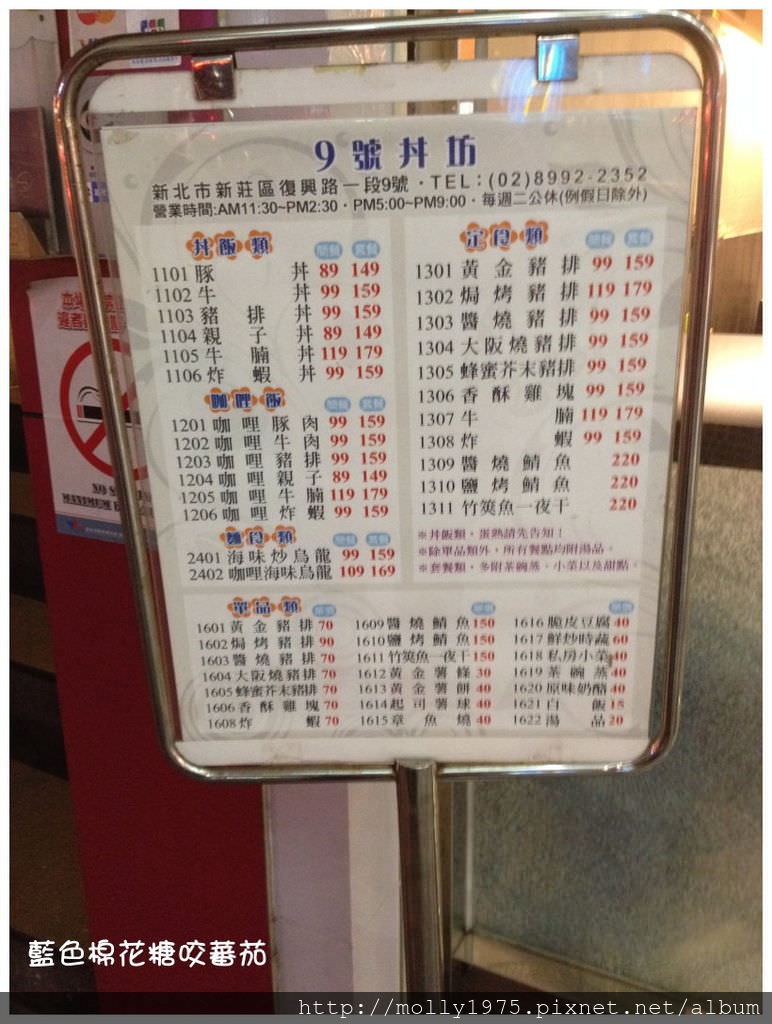 9號丼坊
新北市新莊區復興路一段9號‧TEL：(02)8992-2352
營業時間:AM11:30~PM2:30‧PM5:00~PM9:00‧每週二公休(例假日除外)
丼飯類 套餐
1101 豚丼 89 149
1102 牛丼 99 159
1103 豬排丼 99 159
1104 親子丼 89 149
1105 牛腩丼 119 179
1106 炸蝦丼 99 159
咖哩飯 套餐
1201 咖哩豚肉 99 159
1202 咖哩牛肉 99 159
1203 咖哩豬排 99 159
1204 咖哩親子 89 149
1205 咖哩牛腩 119 179
1206 咖哩炸蝦 99 159
麵食類 套餐
2401 海味炒烏龍 99 159
2402 咖哩海味烏龍 109 169
定食類 套餐
1301 黃金豬排 99 159
1302 焗烤豬排 119 179
1303 醬燒豬排 99 159
1304 大阪燒豬排 99 159
1305 蜂蜜芥末豬排 99 159
1306 香酥雞塊 99 159
1307 牛腩 119 179
1308 炸蝦 99 159
1309 醬燒鯖魚 220
1310 鹽烤鯖魚 220
1311 竹筴魚一夜干 220
※丼飯類，蛋熟請先告知！
※除單品類外，所有餐點均附湯品。
※套餐類，多附茶碗蒸、小菜以及甜點。
單品類
1601 黃金豬排 70
1602 焗烤豬排 90
1603 醬燒豬排 70
1604 大阪燒豬排 70
1605 蜂蜜芥末豬排 70
1606 香酥雞塊 70
1608 炸蝦 70
1609 醬燒鯖魚 150
1610 鹽烤鯖魚 150
1611 竹筴魚一夜干 150
1612 黃金薯條 30
1613 黃金薯餅 40
1614 起司薯球 40
1615 章魚燒 40
1616 脆皮豆腐 40
1617 鮮炒時蔬 60
1618 私房小菜 40
1619 茶碗蒸 40
1620 原味奶酪 40
1621 白飯 15
1622 湯品 20
藍色棉花糖咬蕃茄
http://molly1975.pixnet.net/album